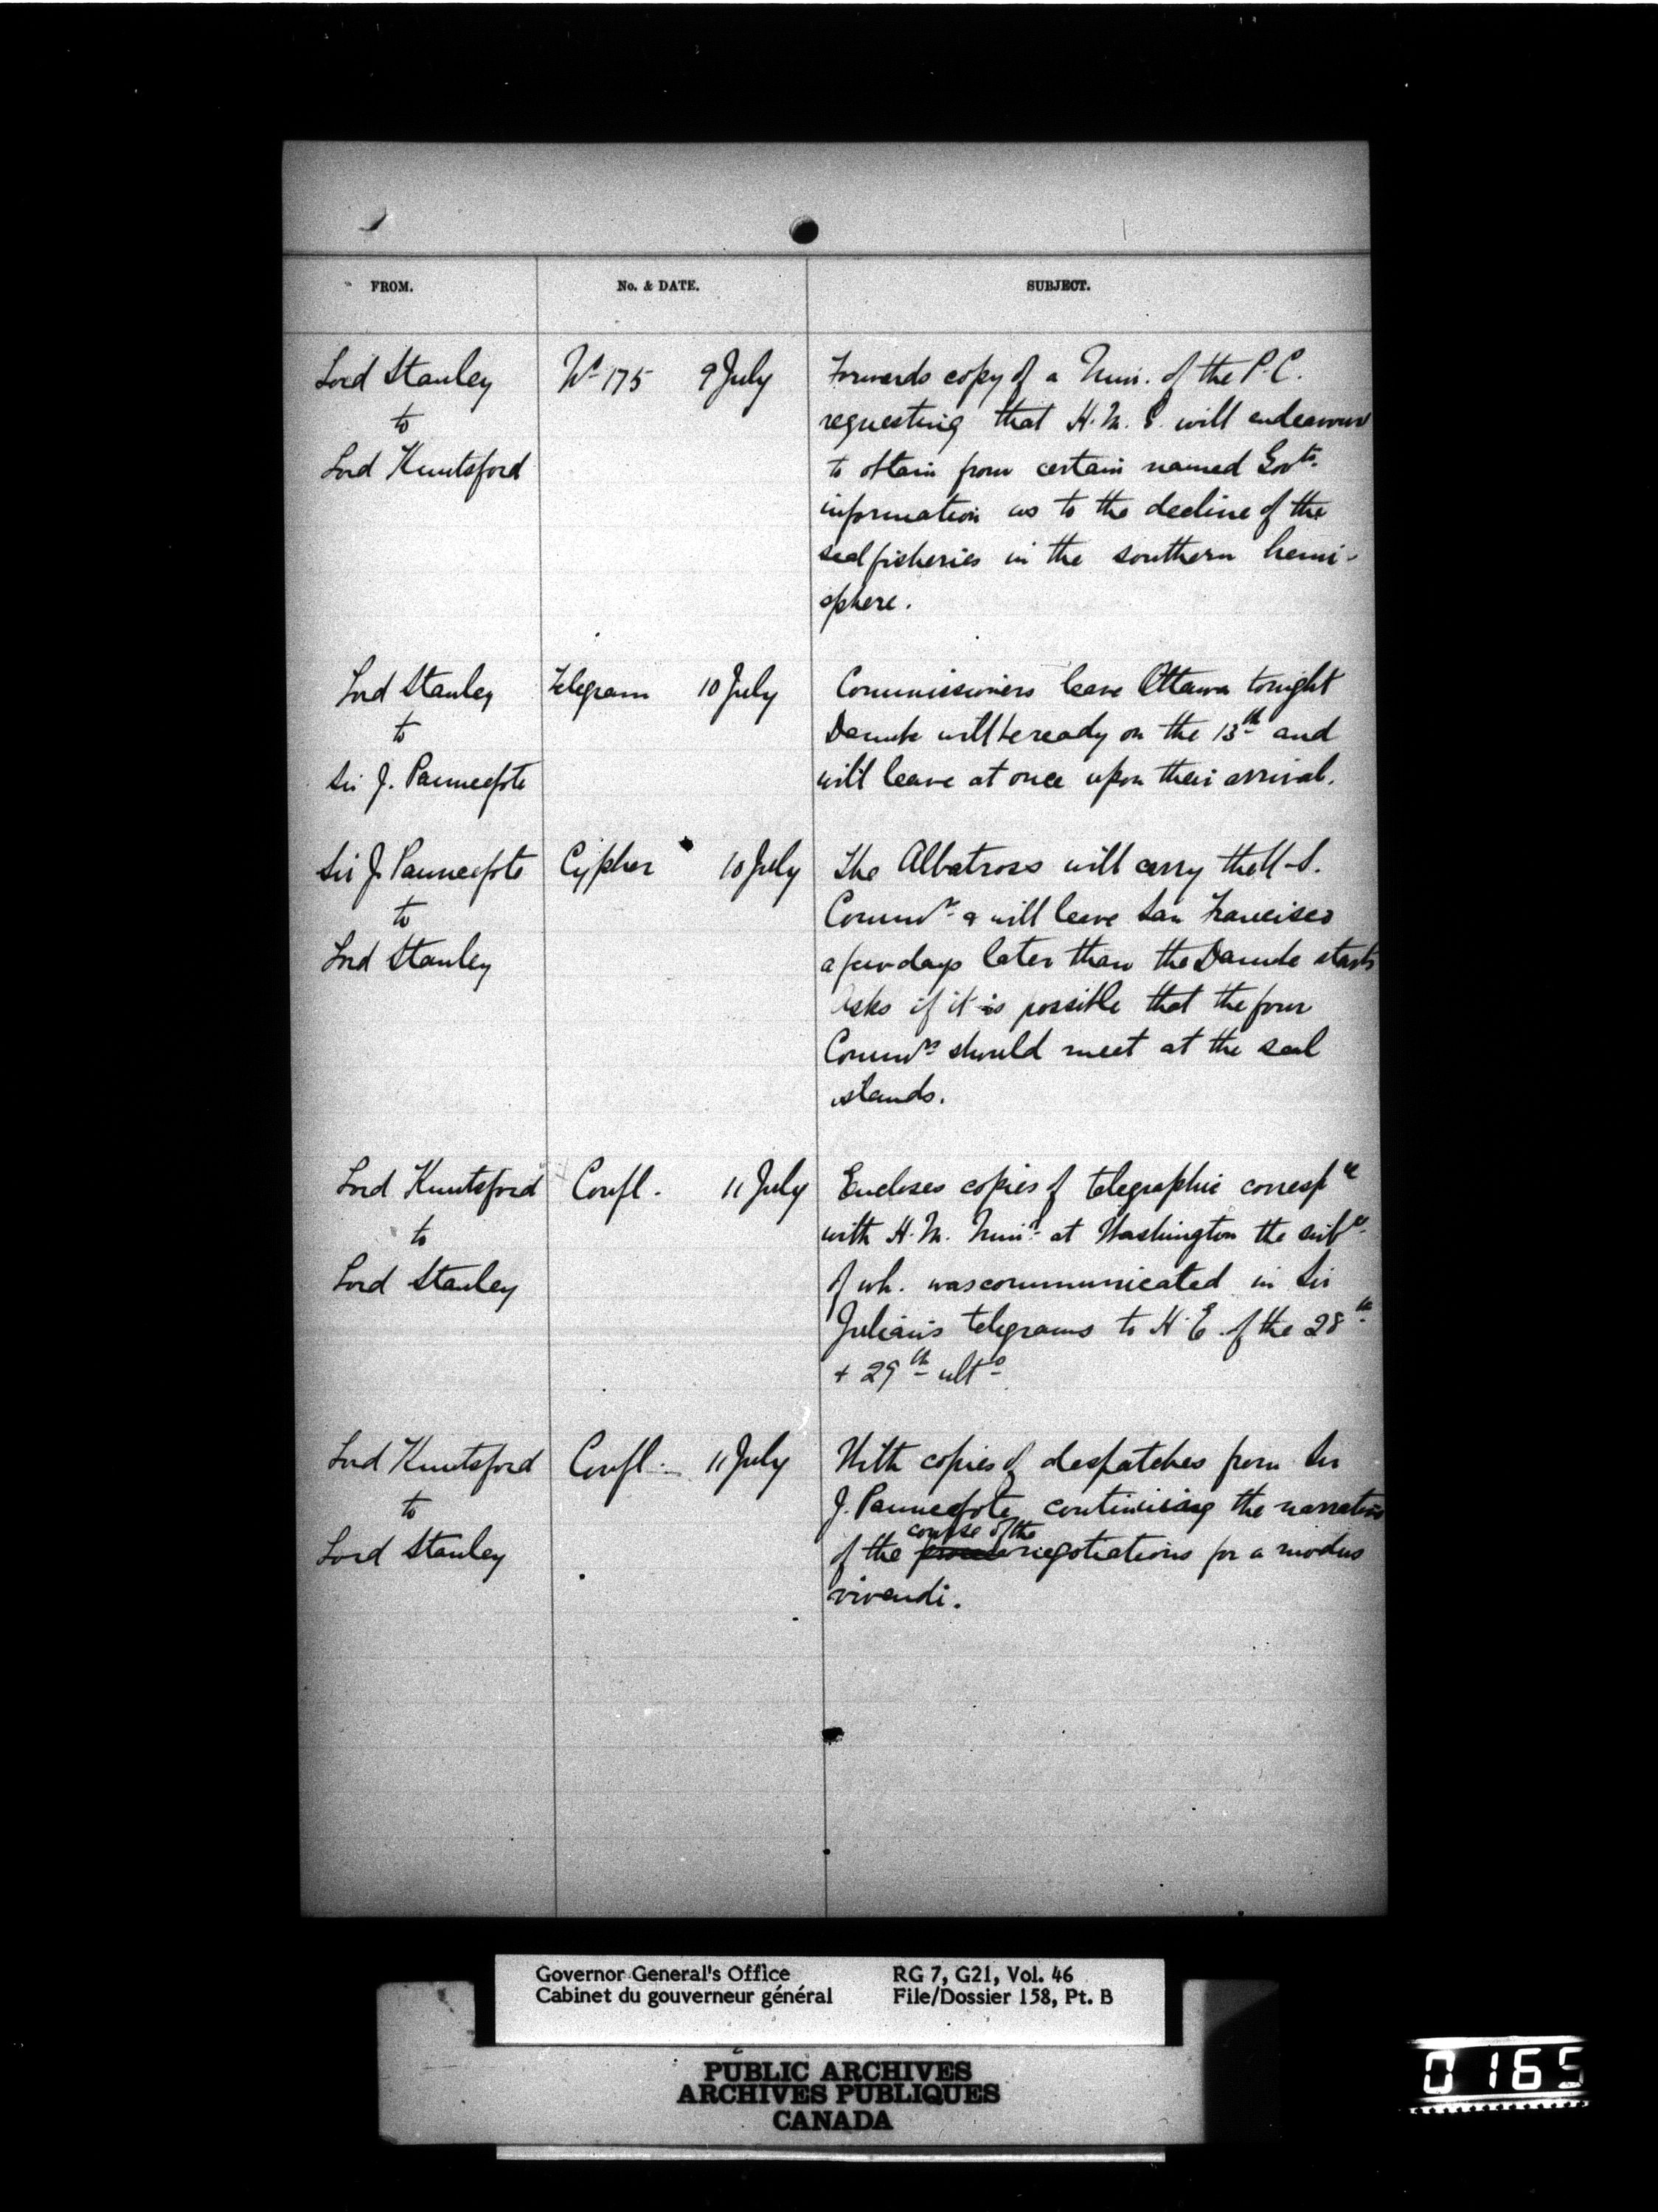 FROM. No. & DATE. SUBJECT.
Lord Stanley No 175 9 July Forwards copy of a Min. of the P.C.
to requesting that H.M.G. will endeavour
Lord Knutsford to obtain from certain named Govts.
information as to the decline of the
seal fisheries in the southern hemi-
sphere.
Lord Stanley Telegram 10 July Commissioners leave Ottawa tonight
to Danube will be ready on the 13th and
Sir J. Pauncefote will leave at once upon their arrival.
Sir J. Pauncefote Cypher 10 July The Albatross will carry the U.S.
to Commrs & will leave San Francisco
Lord Stanley a few days later than the Danube starts
Asks if it is possible that the four
Commrs should meet at the seal
islands.
Lord Knutsford Confl. 11 July Encloses copies of telegraphic correspce
to with H.M. Minr at Washington the subce
Lord Stanley of wh. was communicated in Sir
Julian's telegrams to H.E. of the 28th
+ 29th ulto
Lord Knutsford Confl. 11 July With copies of despatches from Sir
to J. Pauncefote continuing the narrative
course of the
Lord Stanley of the negotiations for a modus
vivendi.
Governor General's Office RG 7, G21, Vol. 46
Cabinet du gouverneur général File/Dossier 158, Pt. B
PUBLIC ARCHIVES
ARCHIVES PUBLIQUES
CANADA
0165